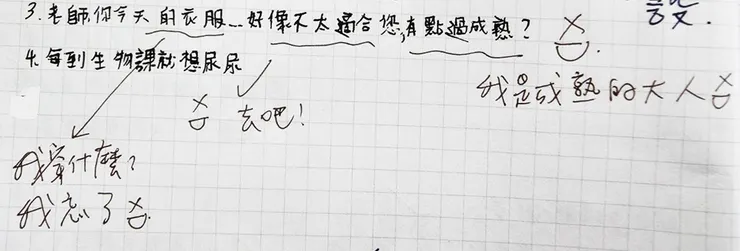 3.老師你今天的衣服…好像不太適合您,有點過成熟?
4.每到生物課就想尿尿
我是成熟的大人
去吧!
我穿什麼?
我忘了